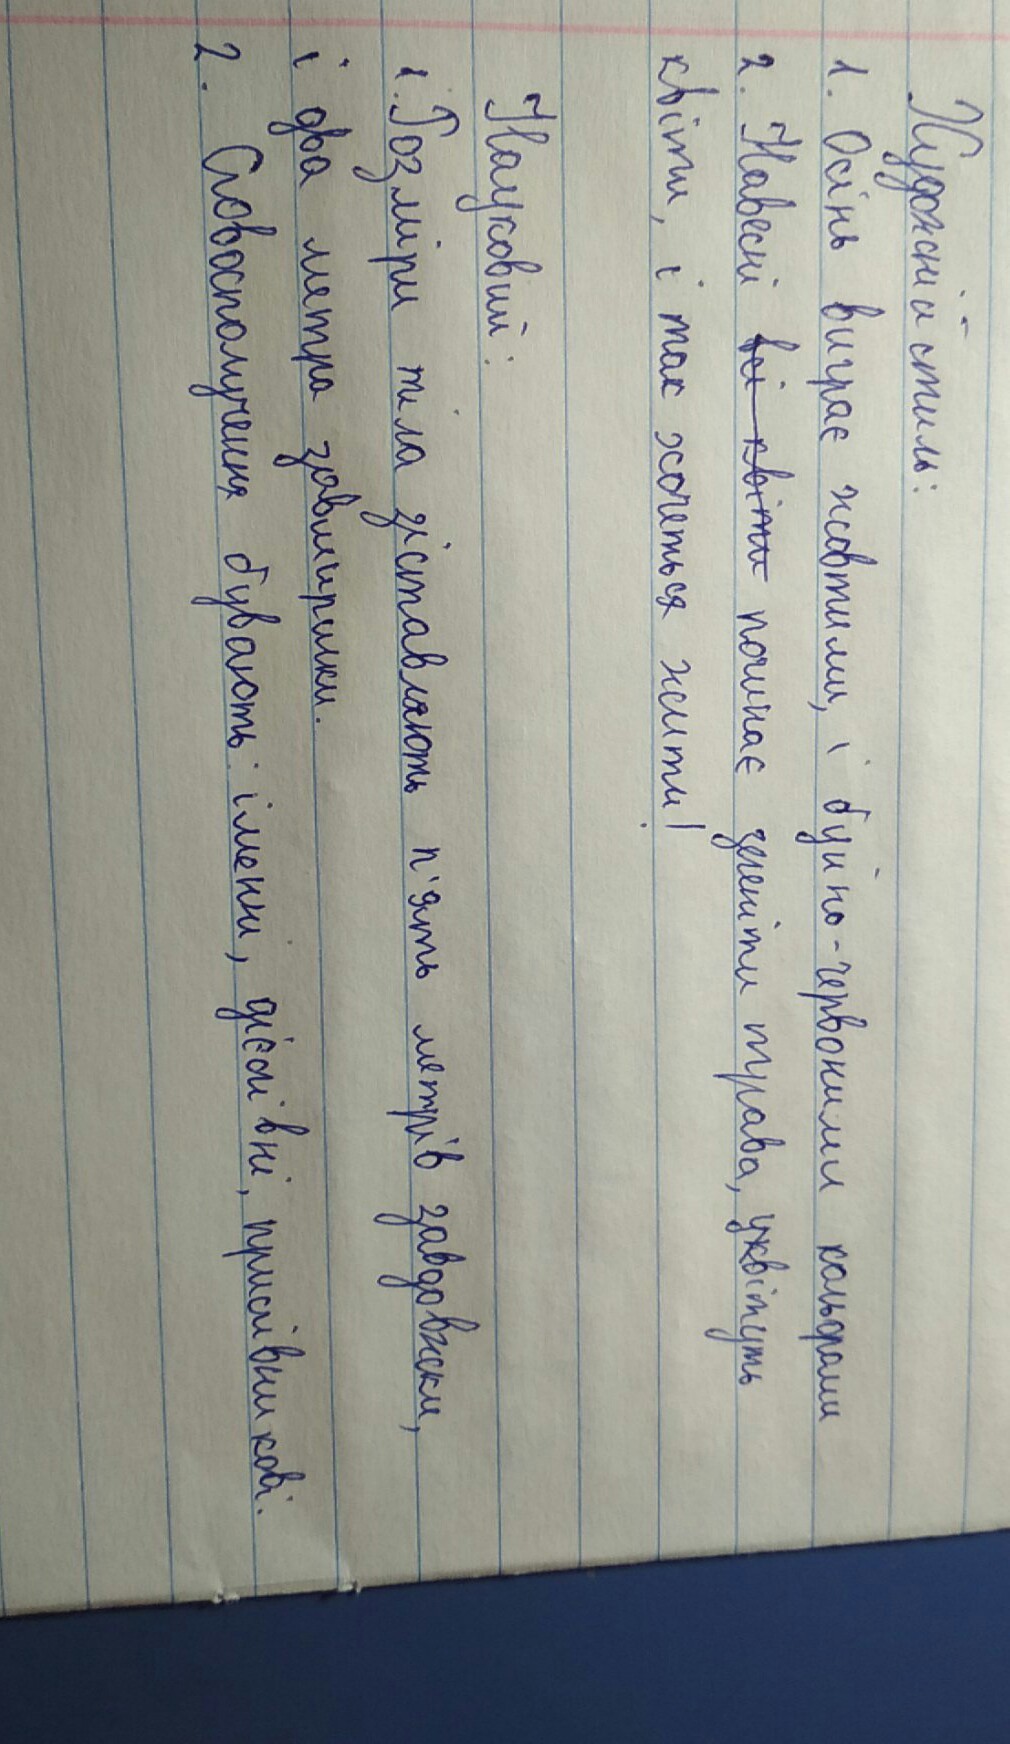 Художній стиль:
1. Осінь виграє жовтими, і буйно-червоними кольорами
2. Навесні всі квіти починає зеленіти трава, уквітуть
квіти, і так хочеться жити!
Науковий:
1. Розміри тіла діставляють п'ять метрів завдовжки,
і два метра завширшки.
2. Словосполучення бувають: іменні, дієслівні, прислівникові.